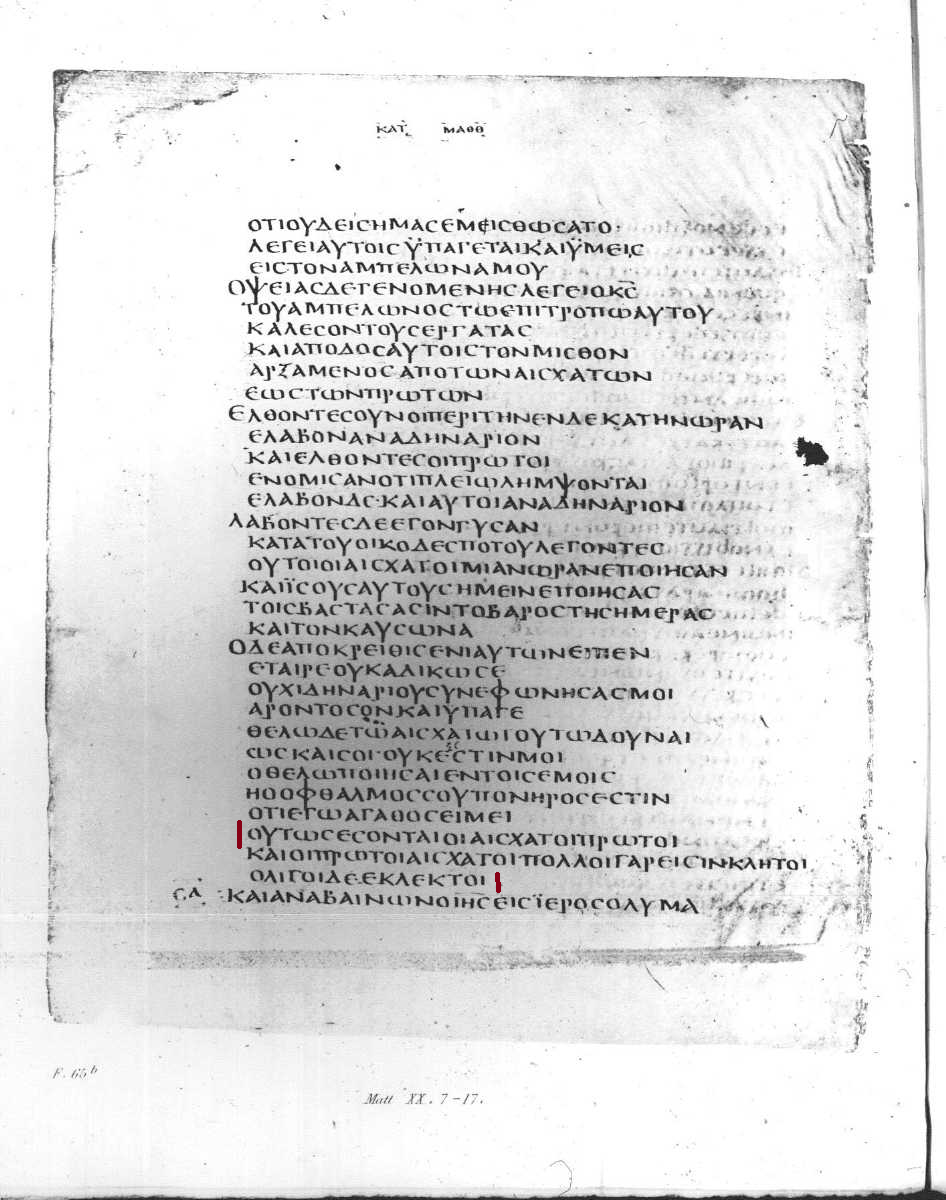 ΚΑΤ ΜΑΘΘ
ΟΤΙΟΥΔΕΙСΗΜΑСΕΜΕΙСΘΩСΑΤΟ·
ΛΕΓΕΙΑΥΤΟΙСΫΠΑΓΕΤΑΙΚΑΙΫΜΕΙС
ΕΙСΤΟΝΑΜΠΕΛΩΝΑΜΟΥ
ΟΨΕΙΑСΔΕΓΕΝΟΜΕΝΗСΛΕΓΕΙΟΚ̅С̅
ΤΟΥΑΜΠΕΛΩΝΟСΤΩΕΠΙΤΡΟΠΩΑΥΤΟΥ
ΚΑΛΕСΟΝΤΟΥСΕΡΓΑΤΑС
ΚΑΙΑΠΟΔΟСΑΥΤΟΙСΤΟΝΜΙСΘΟΝ
ΑΡΞΑΜΕΝΟСΑΠΟΤΩΝΑΙСΧΑΤΩΝ
ΕΩСΤΩΝΠΡΩΤΩΝ
ΕΛΘΟΝΤΕСΟΥΝΟΙΠΕΡΙΤΗΝΕΝΔΕΚΑΤΗΝΩΡΑΝ
ΕΛΑΒΟΝΑΝΑΔΗΝΑΡΙΟΝ
ΚΑΙΕΛΘΟΝΤΕСΟΙΠΡΩΤΟΙ
ΕΝΟΜΙСΑΝΟΤΙΠΛΕΙΩΛΗΜΨΟΝΤΑΙ
ΕΛΑΒΟΝΔΕ·ΚΑΙΑΥΤΟΙΑΝΑΔΗΝΑΡΙΟΝ
ΛΑΒΟΝΤΕСΔΕΕΓΟΝΓΥСΑΝ
ΚΑΤΑΤΟΥΟΙΚΟΔΕСΠΟΤΟΥΛΕΓΟΝΤΕС
ΟΥΤΟΙΟΙΑΙСΧΑΤΟΙΜΙΑΝΩΡΑΝΕΠΟΙΗСΑΝ
ΚΑΙΪСΟΥСΑΥΤΟΥСΗΜΕΙΝΕΠΟΙΗСΑС
ΤΟΙСΒΑСΤΑСΑСΙΝΤΟΒΑΡΟСΤΗСΗΜΕΡΑС
ΚΑΙΤΟΝΚΑΥСΩΝΑ
ΟΔΕΑΠΟΚΡΕΙΘΙСΕΝΙΑΥΤΩΝΕΙΠΕΝ
ΕΤΑΙΡΕΟΥΚΑΔΙΚΩСΕ
ΟΥΧΙΔΗΝΑΡΙΟΥСΥΝΕΦΩΝΗСΑСΜΟΙ
ΑΡΟΝΤΟСΟΝΚΑΙΫΠΑΓΕ
ΘΕΛΩΔΕΤΩΑΙСΧΑΤΩΤΟΥΤΩΔΟΥΝΑΙ
ΩСΚΑΙСΟΙ·ΟΥΚΕСΤΙΝΜΟΙ
ΟΘΕΛΩΠΟΙΗСΑΙΕΝΤΟΙСΕΜΟΙС
ΗΟΟΦΘΑΛΜΟССΟΥΠΟΝΗΡΟСΕСΤΙΝ
ΟΤΙΕΓΩΑΓΑΘΟСΕΙΜΕΙ
ΟΥΤΩСΕСΟΝΤΑΙΟΙΑΙСΧΑΤΟΙΠΡΩΤΟΙ
ΚΑΙΟΙΠΡΩΤΟΙΑΙСΧΑΤΟΙΠΟΛΛΟΙΓΑΡΕΙСΙΝΚΛΗΤΟΙ
ΟΛΙΓΟΙΔΕΕΚΛΕΚΤΟΙ
СΑ ·ΚΑΙΑΝΑΒΑΙΝΩΝΟΙΗСΕΙСΪΕΡΟСΟΛΥΜΑ
F. 65 b
Matt XX. 7-17.